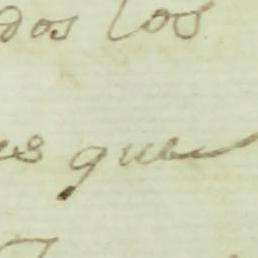 dos los
es que